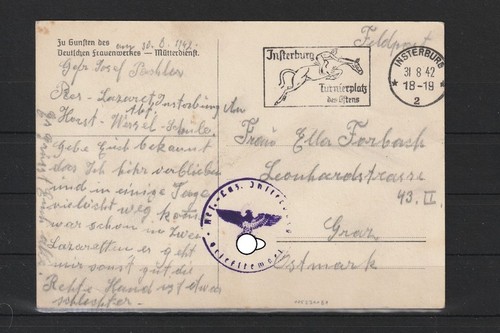 Zu Gunsten des
Deutschen Frauenwerkes — Mütterdienst.
Gefr Josef
Res-Lazarett Insterburg
Abt.
Horst-Wessel-Schule
Gebe Euch bekannt
das ich hier verblieben
und in einige Tage
vieleicht weg
war schon in zwei
Lazaretten es geht
mir sonst gut die
Rechte Hand ist etwas
schlechter.
Insterburg
Turnierplatz
des Ostens
INSTERBURG
31 8 42
*18-19*
2
Feldpost
An
Frau Ella Forbach
Leonhardstrasse
43. II.
Graz
Ostmark
Res.-Laz. Insterburg
Briefstempel